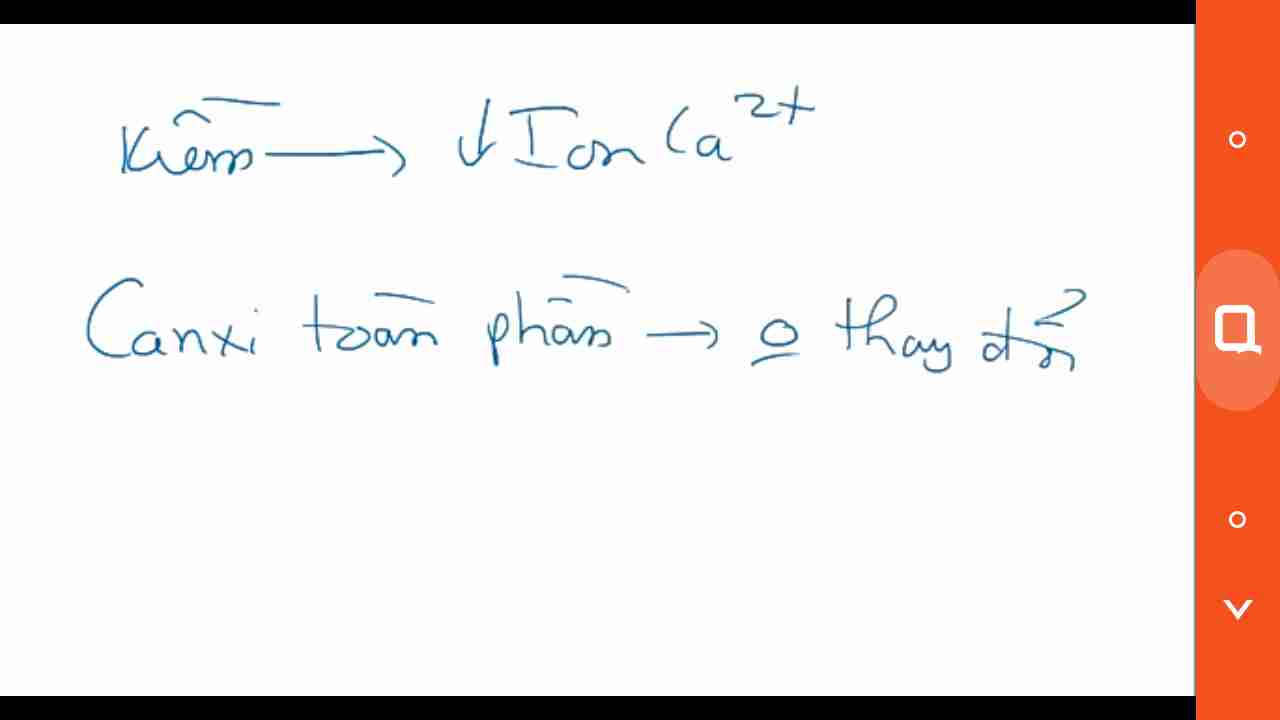 Kiềm → ↓ Ion Ca²⁺
Canxi toàn phần → 0 thay đổi